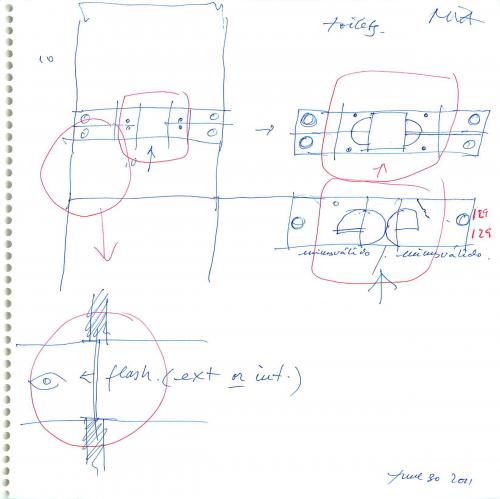 toilets.
10
129
129
minusválido / minusválido.
← flash. (ext or int.)
June 30 2011